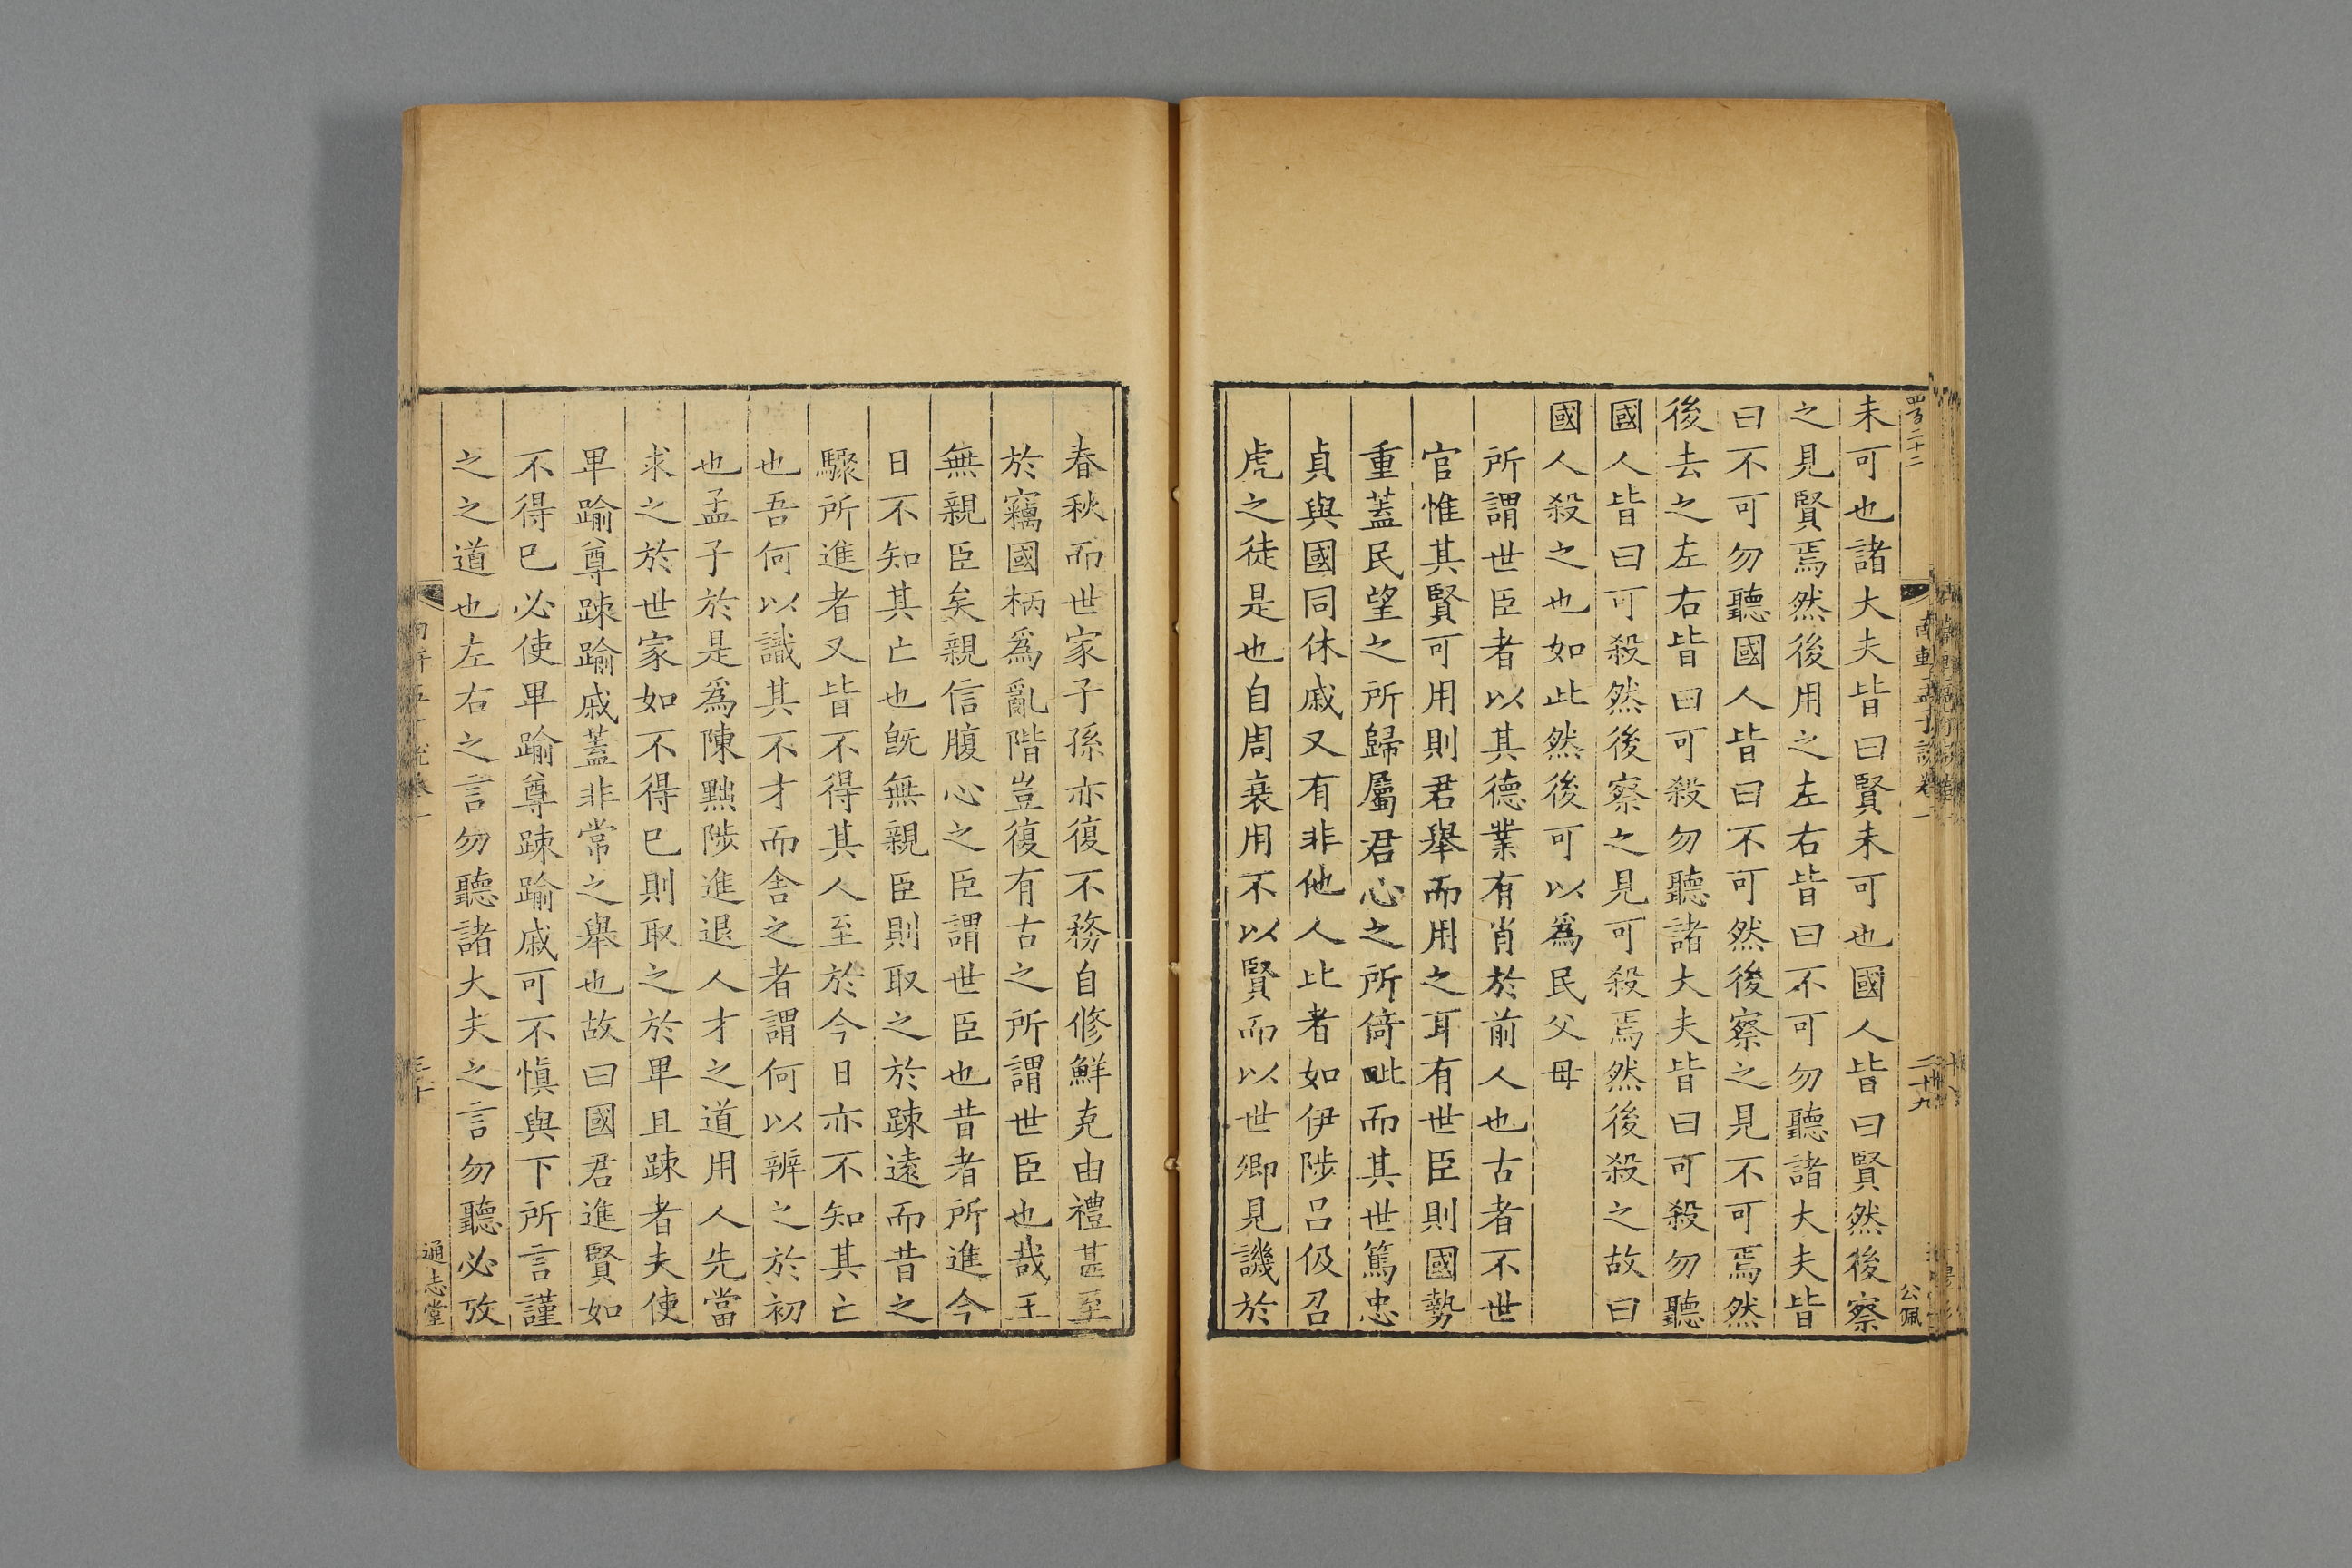 四百二十二
南軒孟子說卷一
二十九
公佩
未可也諸大夫皆曰賢未可也國人皆曰賢然後察
之見賢焉然後用之左右皆曰不可勿聽諸大夫皆
曰不可勿聽國人皆曰不可然後察之見不可焉然
後去之左右皆曰可殺勿聽諸大夫皆曰可殺勿聽
國人皆曰可殺然後察之見可殺焉然後殺之故曰
國人殺之也如此然後可以爲民父母
所謂世臣者以其德業有肖於前人也古者不世
官惟其賢可用則君舉而用之耳有世臣則國勢
重蓋民望之所歸屬君心之所倚毗而其世篤忠
貞與國同休戚又有非他人比者如伊陟呂伋召
虎之徒是也自周衰用不以賢而以世卿見譏於
春秋而世家子孫亦復不務自修鮮克由禮甚至
於竊國柄爲亂階豈復有古之所謂世臣也哉王
無親臣矣親信腹心之臣謂世臣也昔者所進今
日不知其亡也旣無親臣則取之於踈遠而昔之
驟所進者又皆不得其人至於今日亦不知其亡
也吾何以識其不才而舍之者謂何以辨之於初
也孟子於是爲陳黜陟進退人才之道用人先當
求之於世家如不得已則取之於卑且踈者夫使
卑踰尊踈踰戚蓋非常之舉也故曰國君進賢如
不得已必使卑踰尊踈踰戚可不愼與下所言謹
之之道也左右之言勿聽諸大夫之言勿聽必攷
三十
通志堂